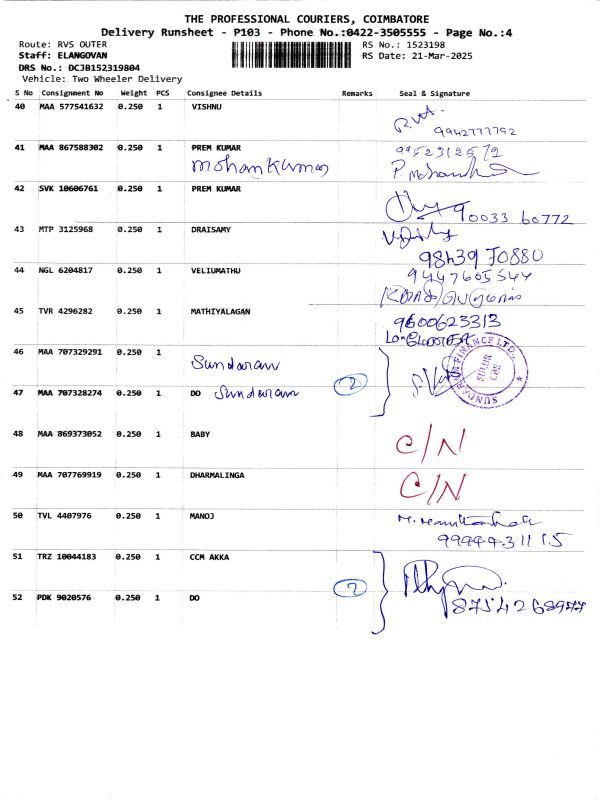 THE PROFESSIONAL COURIERS, COIMBATORE
Delivery Runsheet - P103 - Phone No.:0422-3505555 - Page No.:4
Route: RVS OUTER RS No.: 1523198
Staff: ELANGOVAN RS Date: 21-Mar-2025
DRS No.: DCJB152319804
Vehicle: Two Wheeler Delivery
S No Consignment No Weight PCS Consignee Details Remarks Seal & Signature
40 MAA 577541632 0.250 1 VISHNU
9942777792
41 MAA 867588302 0.250 1 PREM KUMAR 9952312572
mohankumar P. Mohankumar
42 SVK 10606761 0.250 1 PREM KUMAR
90033 60772
43 MTP 3125968 0.250 1 DRAISAMY
98439 70880
44 NGL 6204817 0.250 1 VELIUMATHU 9447605544
45 TVR 4296282 0.250 1 MATHIYALAGAN 9600623313
46 MAA 707329291 0.250 1
Sundaram
SUNDARAM FINANCE LTD.,
SULUR
CBE
47 MAA 707328274 0.250 1 DO Sundaram 2
48 MAA 869373052 0.250 1 BABY C/N
49 MAA 707769919 0.250 1 DHARMALINGA C/N
50 TVL 4407976 0.250 1 MANOJ
9994431115
51 TRZ 10044183 0.250 1 CCM AKKA
2
52 PDK 9020576 0.250 1 DO 8754268977